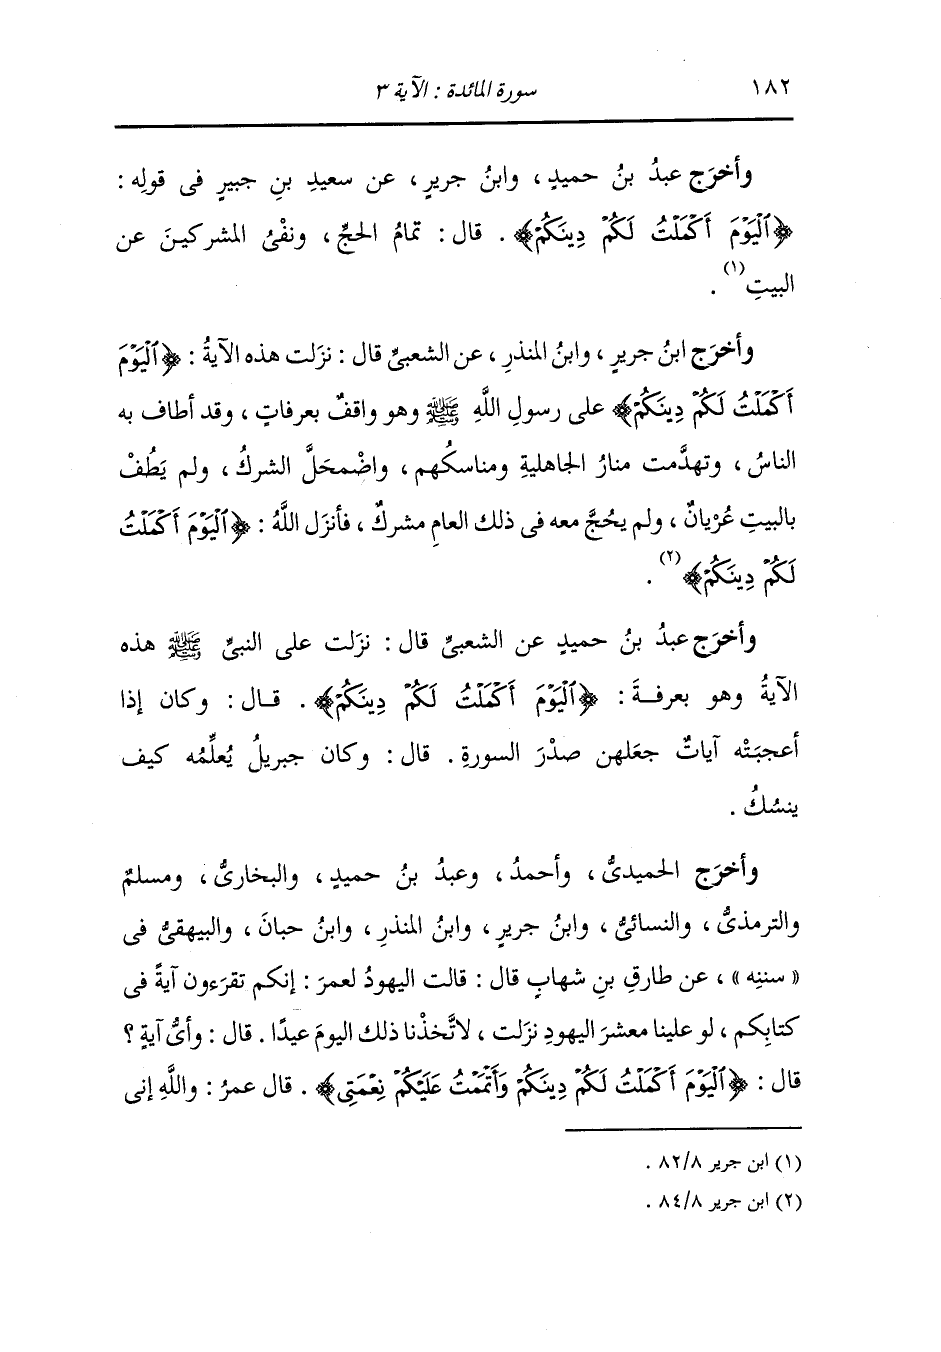 ١٨٢
سورة المائدة : الآية ٣
وأخرَج عبدُ بنُ حميدٍ ، وابنُ جريرٍ ، عن سعيدِ بنِ جبيرٍ فى قولِه :
﴿ٱلۡيَوۡمَ أَكۡمَلۡتُ لَكُمۡ دِينَكُمۡ﴾ . قال : تمامُ الحجِّ ، ونفْىُ المشركينَ عن
البيتِ(١) .
وأخرَج ابنُ جريرٍ ، وابنُ المنذرِ ، عن الشعبىِّ قال : نزَلت هذه الآيةُ : ﴿ٱلۡيَوۡمَ
أَكۡمَلۡتُ لَكُمۡ دِينَكُمۡ﴾ على رسولِ اللَّهِ ﷺ وهو واقفٌ بعرفاتٍ ، وقد أطاف به
الناسُ ، وتهدَّمت منارُ الجاهليةِ ومناسكُهم ، واضْمحَلَّ الشركُ ، ولم يَطُفْ
بالبيتِ عُرْيانٌ ، ولم يحُجَّ معه فى ذلك العامِ مشركٌ ، فأنزَل اللَّهُ : ﴿ٱلۡيَوۡمَ أَكۡمَلۡتُ
لَكُمۡ دِينَكُمۡ﴾(٢) .
وأخرَج عبدُ بنُ حميدٍ عن الشعبىِّ قال : نزَلت على النبىِّ ﷺ هذه
الآيةُ وهو بعرفـةَ : ﴿ٱلۡيَوۡمَ أَكۡمَلۡتُ لَكُمۡ دِينَكُمۡ﴾ . قـال : وكان إذا
أعجبَتْه آياتٌ جعَلهن صدْرَ السورةِ . قال : وكان جبريلُ يُعلِّمُه كيف
ينسُكُ .
وأخرَج الحميدىُّ ، وأحمدُ ، وعبدُ بنُ حميدٍ ، والبخارىُّ ، ومسلمٌ
والترمذىُّ ، والنسائىُّ ، وابنُ جريرٍ ، وابنُ المنذرِ ، وابنُ حبانَ ، والبيهقىُّ فى
« سننِه » ، عن طارقِ بنِ شهابٍ قال : قالت اليهودُ لعمرَ : إنكم تقرَءون آيةً فى
كتابِكم ، لو علينا معشرَ اليهودِ نزَلت ، لاتَّخذْنا ذلك اليومَ عيدًا . قال : وأىُّ آيةٍ ؟
قال : ﴿ٱلۡيَوۡمَ أَكۡمَلۡتُ لَكُمۡ دِينَكُمۡ وَأَتۡمَمۡتُ عَلَيۡكُمۡ نِعۡمَتِى﴾ . قال عمرُ : واللَّهِ إنى
(١) ابن جرير ٨٢/٨ .
(٢) ابن جرير ٨٤/٨ .